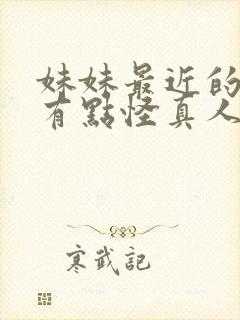 妹妹最近的
有點怪真人
寒武記